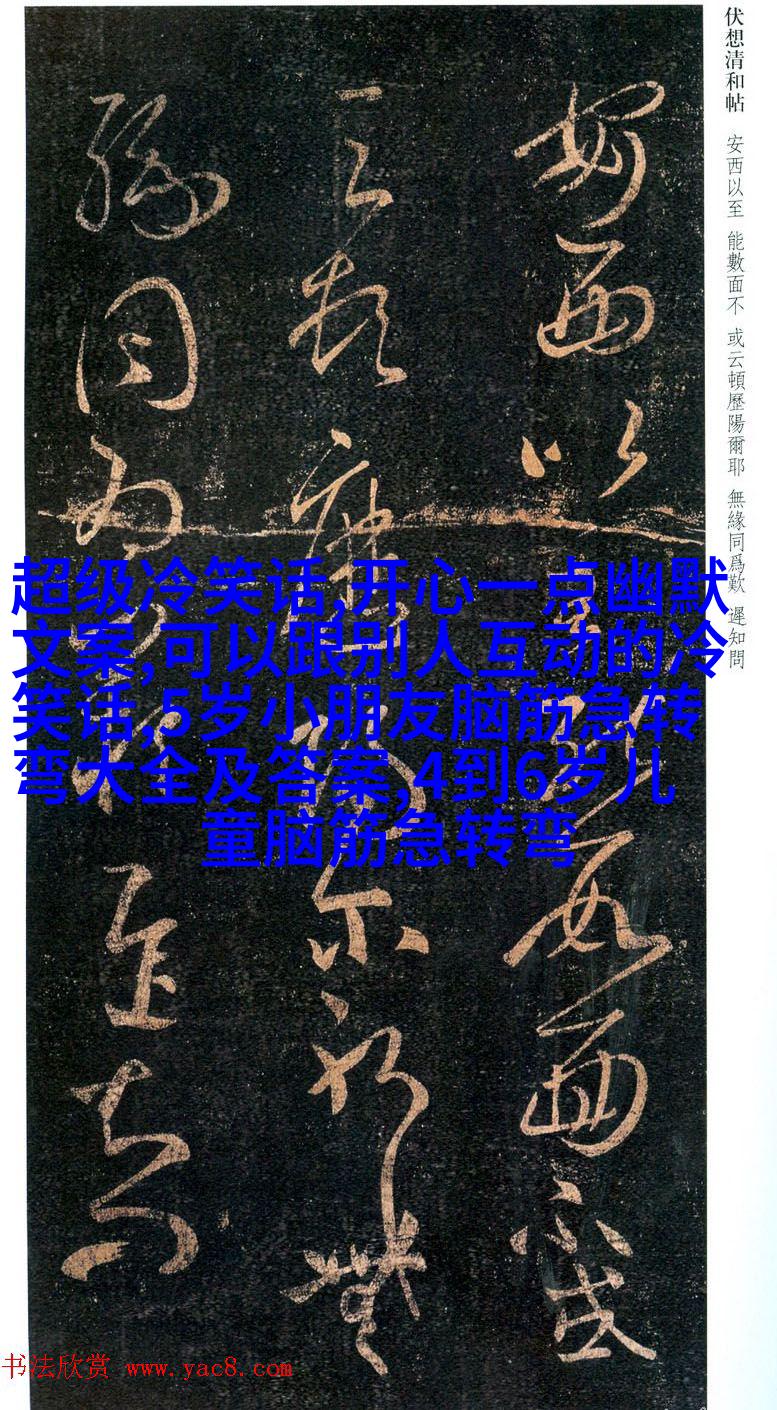 伏想清和帖 安西以至 能數面不 或云頓歷陽爾耶 無緣同爲歎 遲知問
安西以至能數面不或
云頓歷陽爾耶無
緣同爲歎遲知問
超级冷笑话,开心一点幽默
文案,可以跟别人互动的冷
笑话,5岁小朋友脑筋急转
弯大全及答案,4到6岁儿
童脑筋急转弯
书法欣赏 www.yac8.com